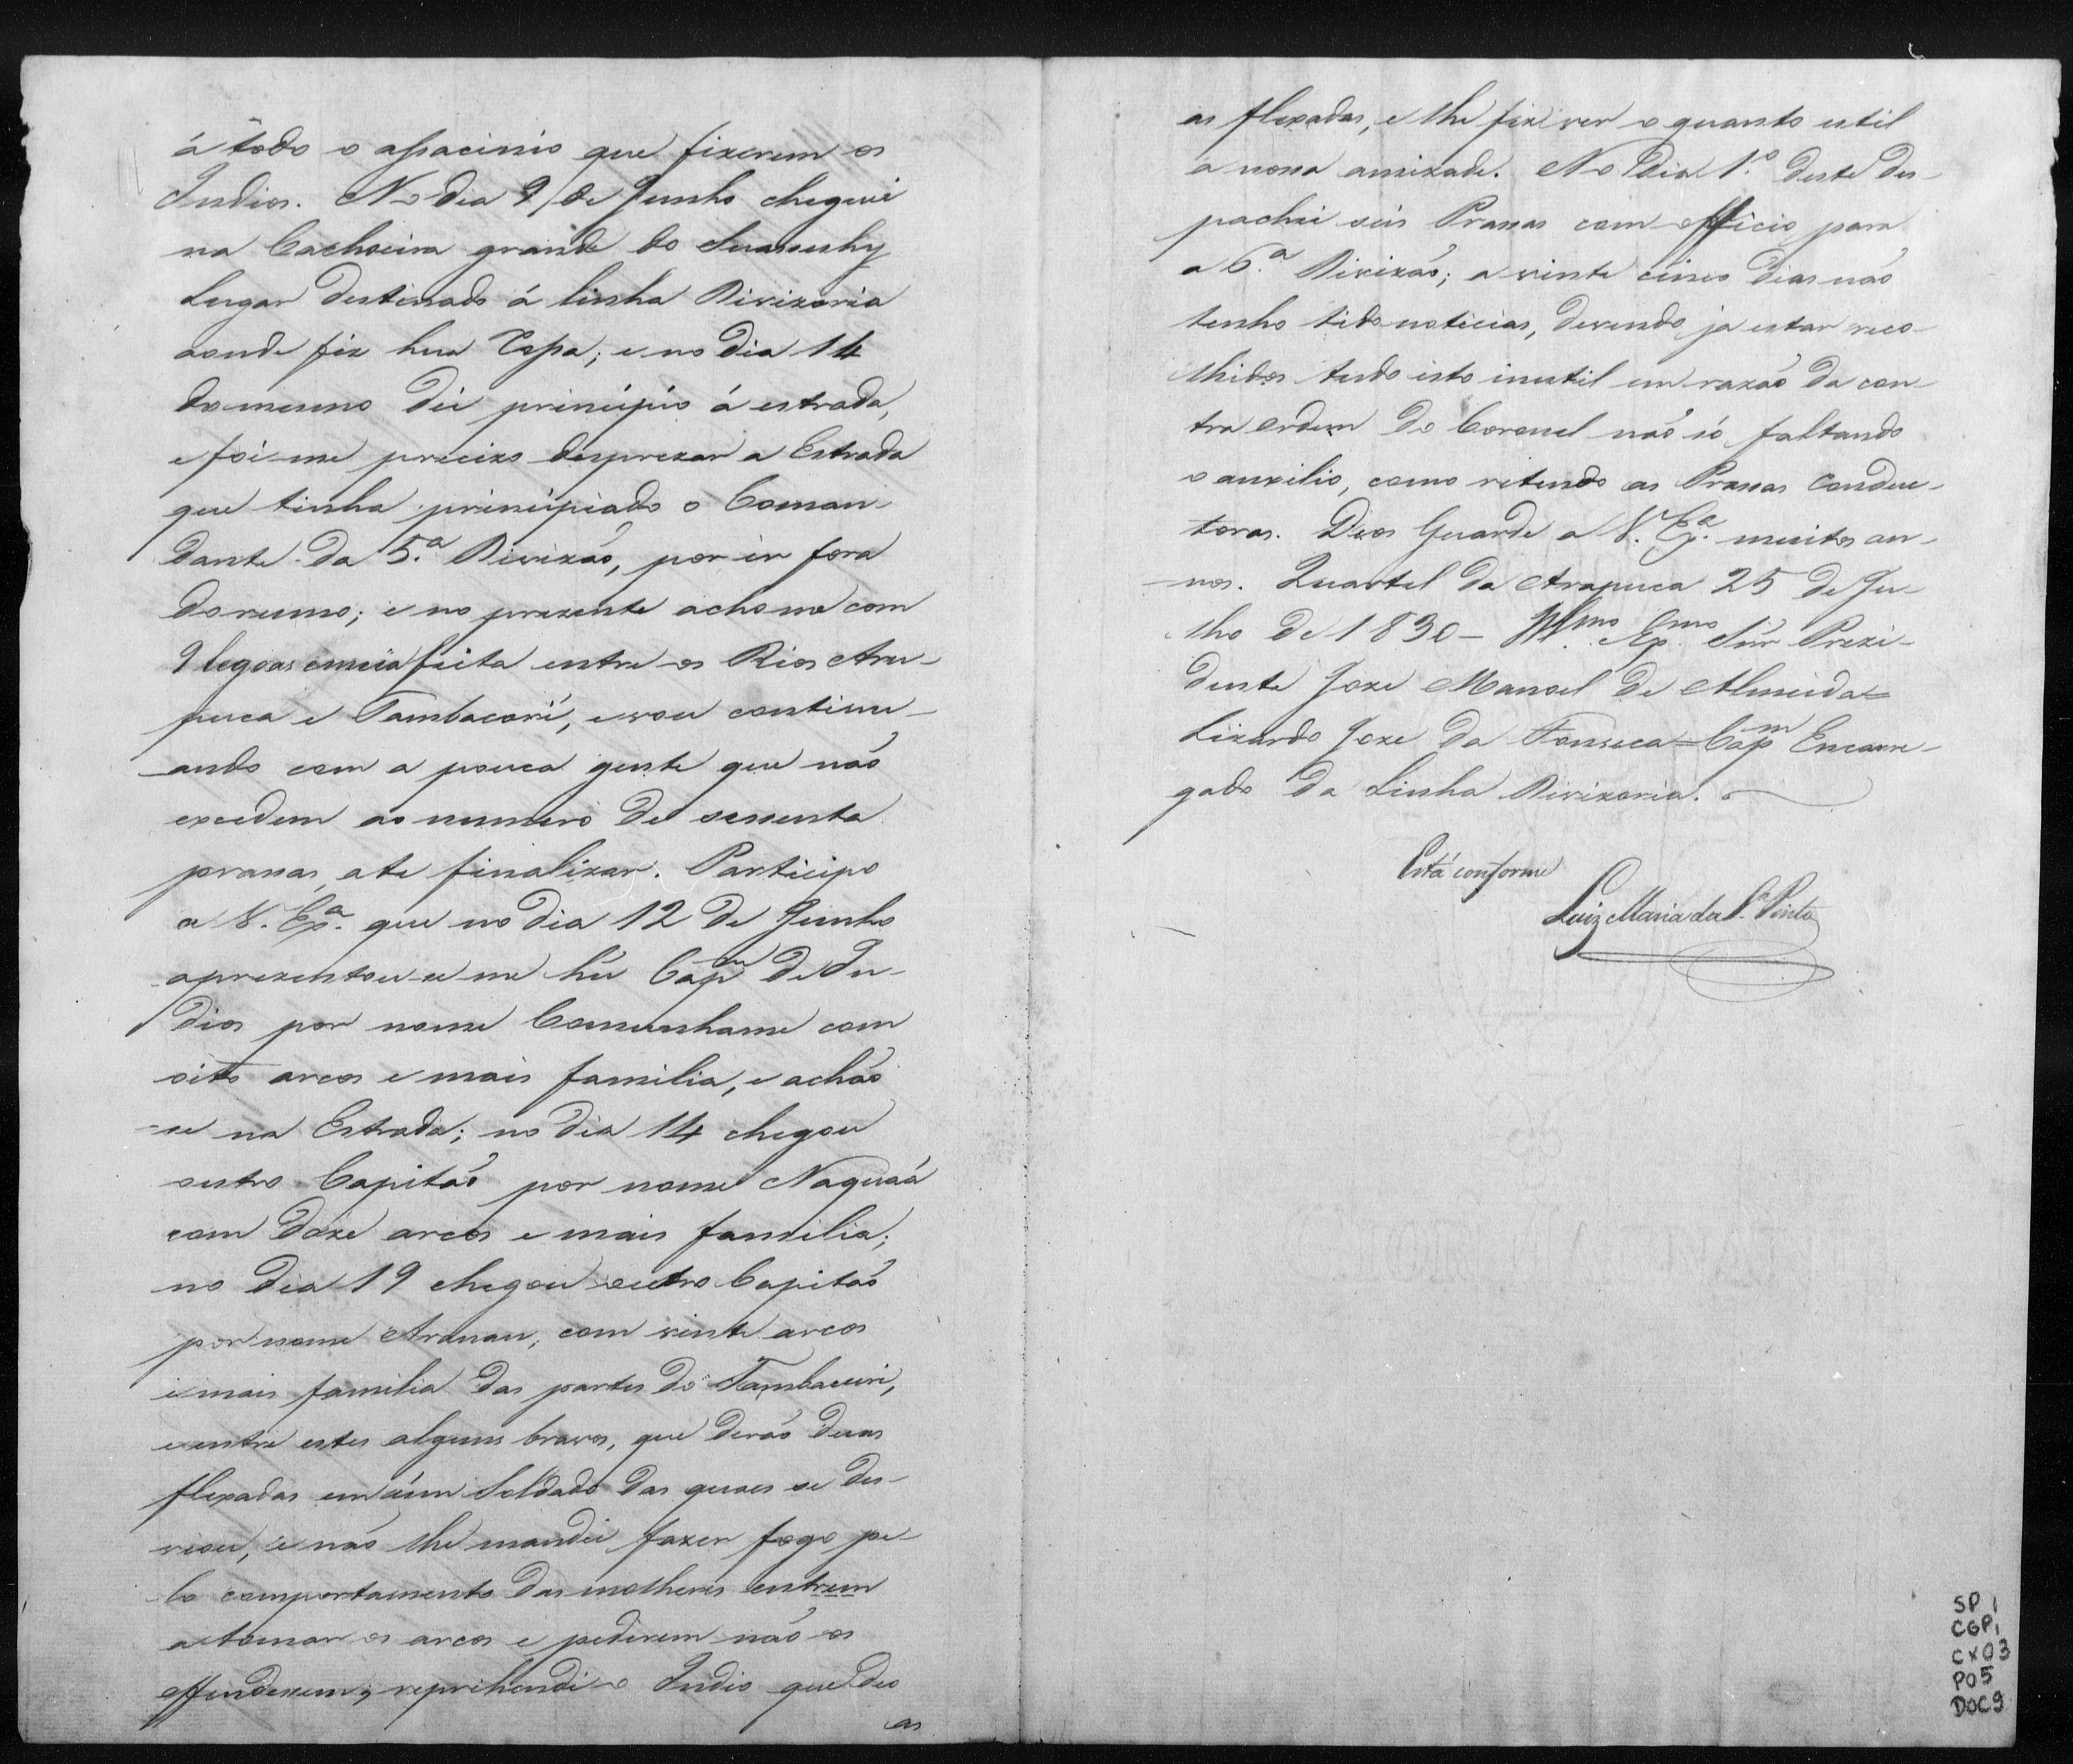 á todo o assacinio que fizerem os
Indios. No dia 9 de Junho cheguei
na Cachoeira grande do Suassuhy
Lugar destinado á linha Divizoria
aonde fiz hua Tapa; e no dia 14
do mesmo dei principio á estrada,
e foi-me precizo desprezar a Estrada
que tinha principiado o Coman-
dante da 5.ª Divizaõ, por ir fora
do rumo; e no prezente acho me com
9 legoas e meia feita entre os Rios Ara-
puca e Tambacori, e vou continu-
ando com a pouca gente que naõ
excedem ao numero de sessenta
prassas, ate finalizar. Participo
a V. Exª. que no dia 12 de Junho
aprezentou-se me hú Capm de In-
dios por nome Comunhame com
oito arcos e mais familia, e achaõ
-se na Estrada; no dia 14 chegou
outro Capitaõ por nome Naquaá
com doze arcos e mais familia;
no dia 19 chegou outro Capitaõ
por nome Aranau, com vinte arcos
e mais familia das partes do Tambacuri,
e entre estes alguns bravos, que deraõ duas
flexadas em úm Soldado das quaes se des-
viou, e naõ lhe mandei fazer fogo pe-
lo comportamento das molheres entrem
a tomar os arcos e pedirem naõ os
offenderem; reprihendi o Indio que deo
as
as flexadas, e lhe fiz ver o quanto util
a nossa amizade. No Dia 1.º deste des-
pachei seis Prassas com officio para
a 6.ª Divizaõ; a vinte cinco dias naõ
tenho tido noticias, devendo ja estar reco-
lhidos tudo isto inutil em razaõ da con-
tra ordem do Coronel naõ só faltando
o auxilio, como retendo as Prassas Conduc-
toras. Deos Guarde a V. Exª. muitos an-
nos. Quartel da Arapuca 25 de Ju-
lho de 1830 - Illmo. Exmo. Snr. Prezi-
dente Joze Manoel de Almeida =
Lizardo Joze da Fonseca = Capm Encarre-
gado da Linha Divizoria.
Está conforme
Luiz Maria da S.ª Pinto
SP 1
CGP1
CX03
P05
DOC9